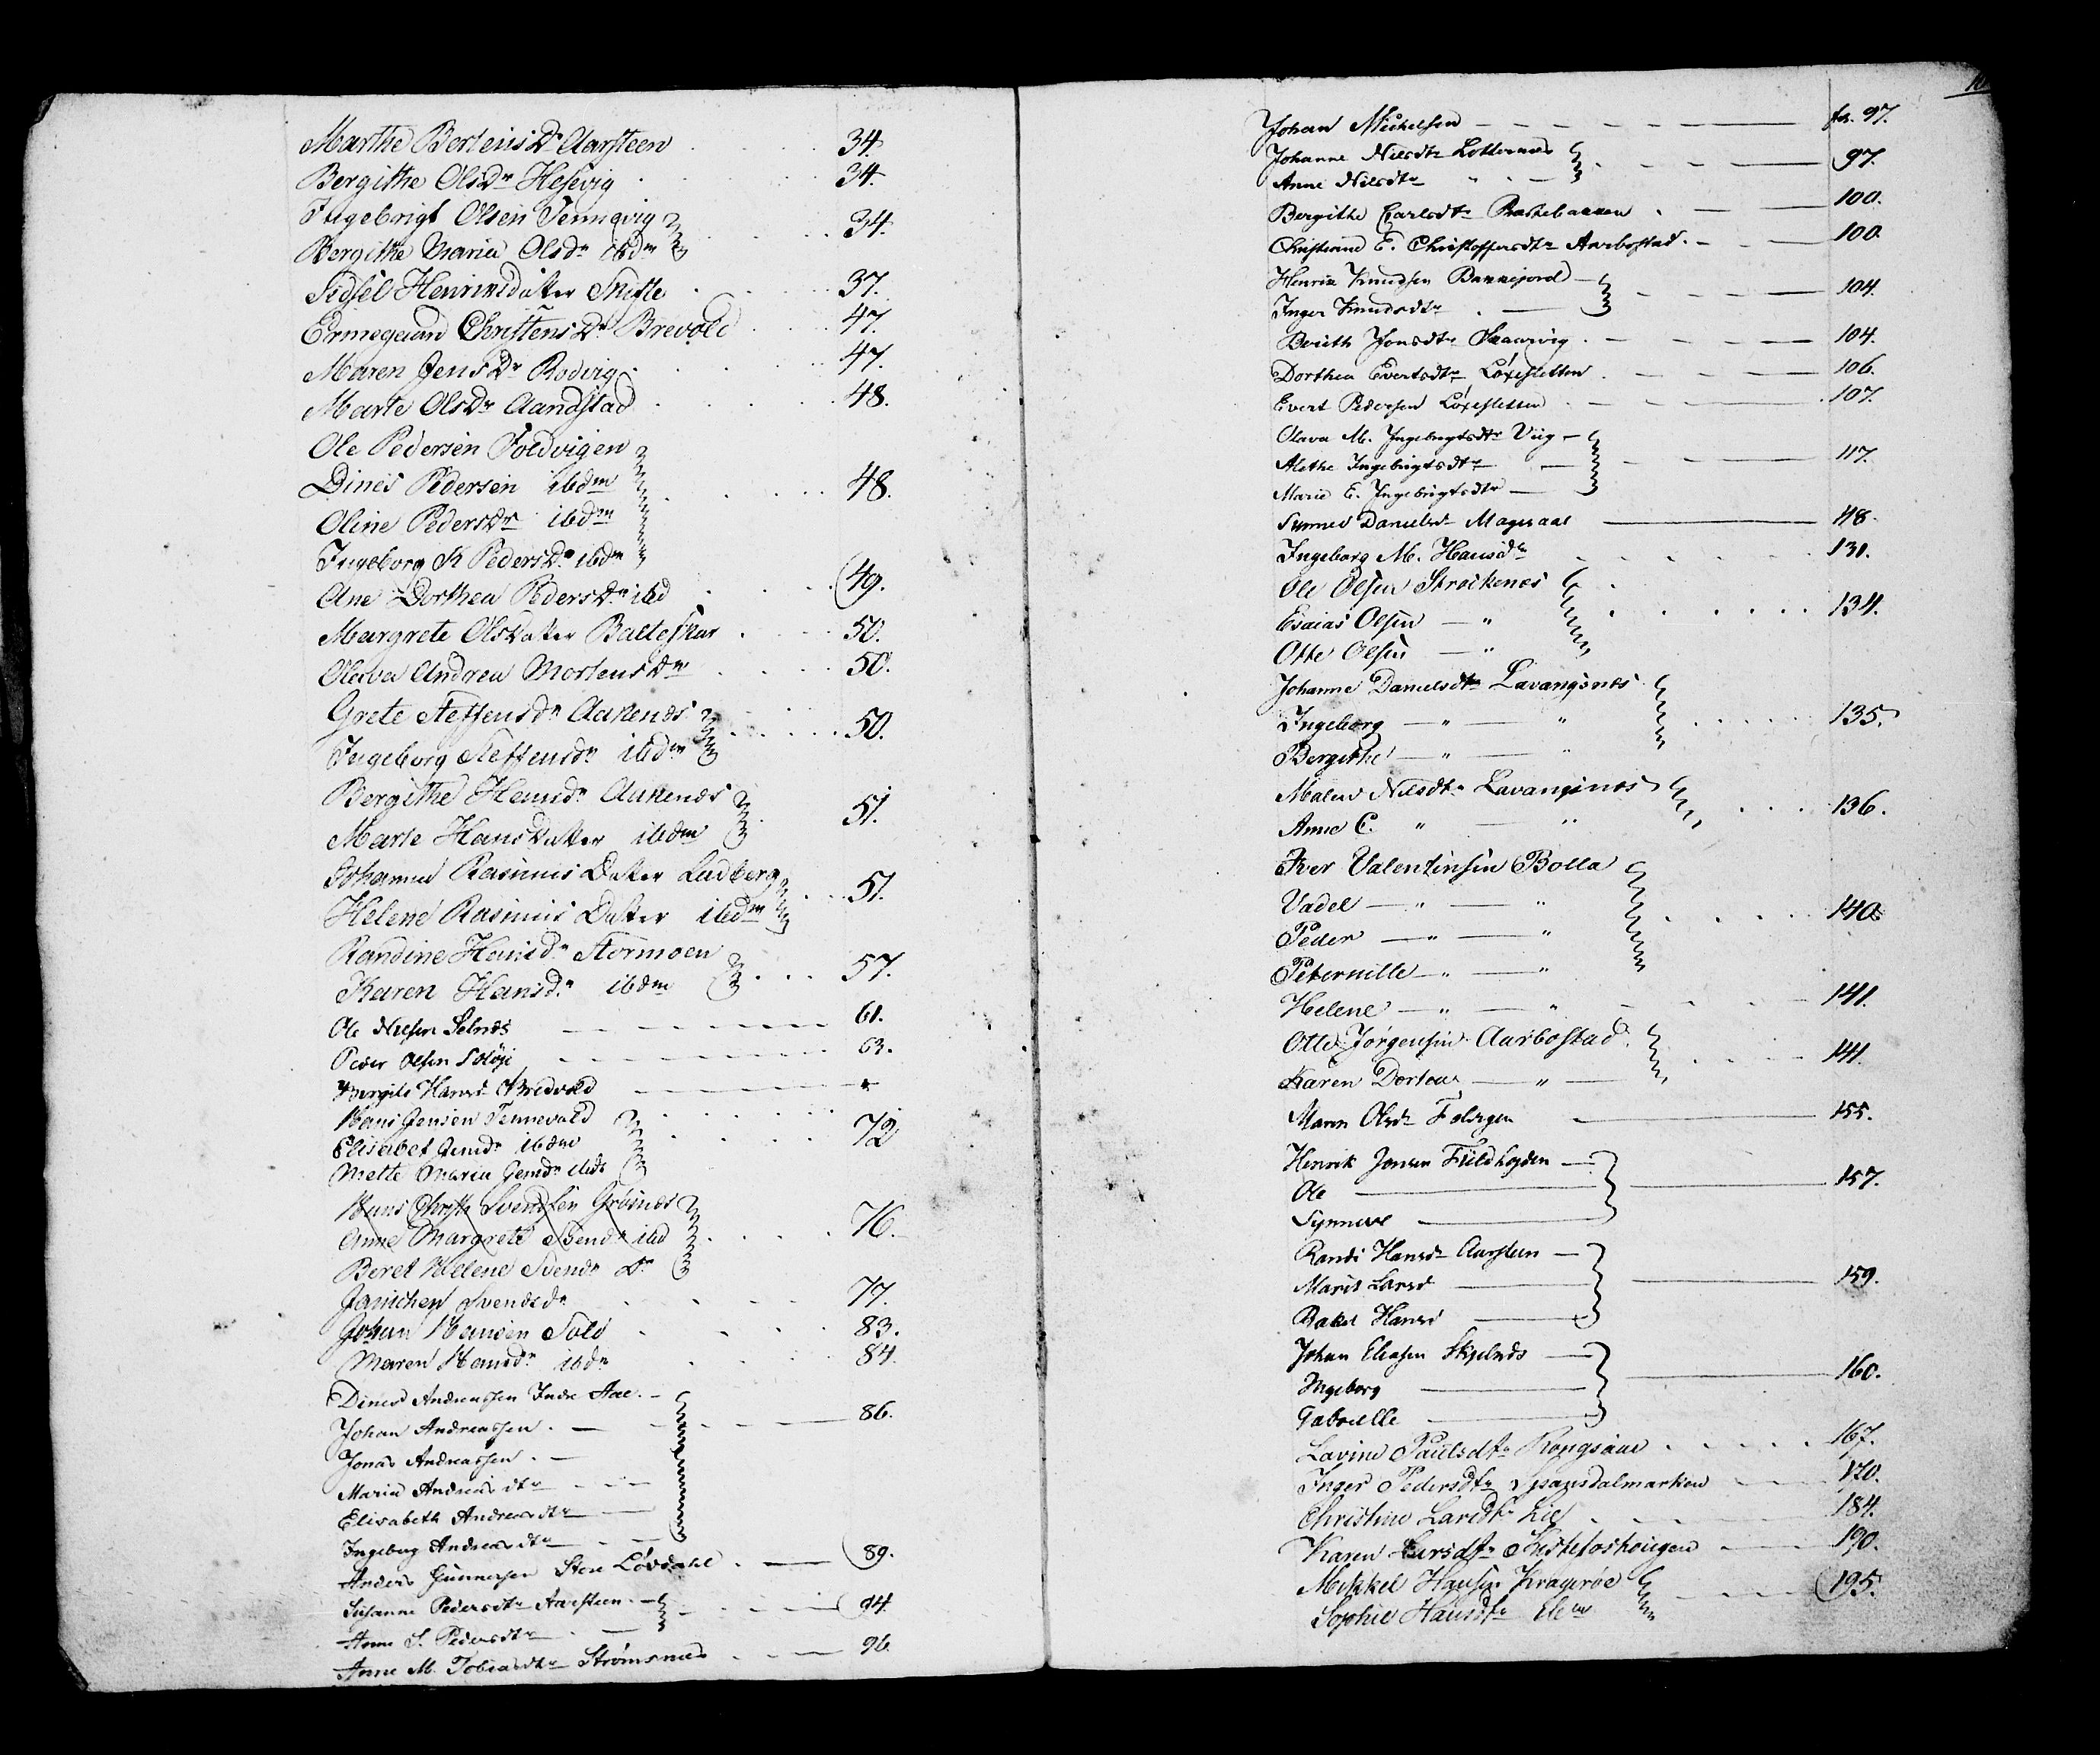 Marthe Bertens Dr Aarsteen 34.
Bergithe Ols Dr Hesevig 34.
Ingebrigt Olsen Tennevig
Bergithe Maria Olsdr ibdm 34.
Sidsel Henrinsdatter Skifte 37.
Ermegaard Christens Dr Brevold 47.
Maren Jens Dr Rodvig 47.
Marte Ols Dr Aandstad 48.
Ole Pedersen Foldvigen
Dines Pedersen ibdm 48.
Oline Peders Dr ibdm
Ingeborg K Peders Dr ibdm
Ane Dorthea Peders Dr ibd 49.
Margrete Olsdatter Balteskar 50.
Olava Andrea Mortens Dr 50.
Grete Steffensdr Aakenes
Ingeborg Steffensdr ibdm 50.
Bergithe Hansdr Aakenes
Marte Hans Datter ibdm 51.
Johanna Rasmus Datter Ladberg
Helene Rasmus Datter ibdm 51.
Randine Hansdr Stormoen
Karen Hansdr ibdm 57.
Ole Nielsen Selnes 61.
Peder Olsen Soløje 63.
Bergite Hansd Bredvold
Hans Jensen Tennevold
Elisabet Jensdr ibdm 72
Mette Maria Jensdr ibds
Hans Christ Svendsen Grøsnes
Anne Margrete Svendr ibd 76.
Beret Helene Svendr Dr
Jamichen Svendsdr 77.
Johan Hansen Sold 83.
Maren Hansdr ibdm 84.
Dines Andreassen Indre Aae. -
Johan Andreassen . - 86.
Jonas Andreassen . -
Maria Andreasdtr
Elisabeth Andreasdtr
Ingeborg Andreasdtr
Anders Gunnersen Store Løvdahl . - 89.
Susanne Pedersdtr Aarsteen . - 94.
Anne S. Pedersdtr
Anne M. Tobiasdtr Strømsnes 96.
Johan Michelsen fol. 97.
Johanne Nilsdtr Lotternes 97.
Anne Nilsdtr "
Bergithe Carlsdtr Brattebakken 100.
Christiane E. Christoffersdtr Aarbostad. - 100.
Henrik Knudsen Bannejord - 104.
Inger Knudsdtr
Berith Jonsdtr Skaarvig 104.
Dorthea Evertsdtr Løxesletten 106.
Evert Pedersen Løxesletten 107.
Olava M. Ingebrigtsdtr Viig -
Alethe Ingebrigtsdtr 117.
Marie E. Ingebrigtsdtr
Synnev Danielsd Mageraae 48.
Ingeborg M. Hansdr 131.
Ole Olsen Strokenes
Esaias Olsen - " 134.
Otto Olsen - "
Johanne Danielsdtr Lavangsnes
Ingeborg - " - " 135.
Bergithe - " - "
Malene Nilsdtr Lavangsnes
Anne C. " - " 136.
Iver Valentinsen Bolla
Vadel - " - " 140.
Peder - " - "
Peternille - " - "
Helene - " - " 141.
Otto Jørgensen Aarbostad
Karen Dortea - " - 141.
Maren Olsd Foldvigen 155.
Henrik Jonsen Fieldhøgden -
Ole 157.
Synneve
Randi Hansd Aarsteen -
Marit Larsd 159.
Rakel Hansd
Johan Eliasen Skjelnes -
Ingeborg 160.
Gabrielle
Lovine Paulsdtr Kongsaae 167.
Inger Pedersdtr Spansdalmarken 170.
Christine Larsdtr Lie 184.
Karen Larsdtr Kistefoshougen 190.
Mikkel Hansen Kragerøe 195.
Sophie Hansdtr